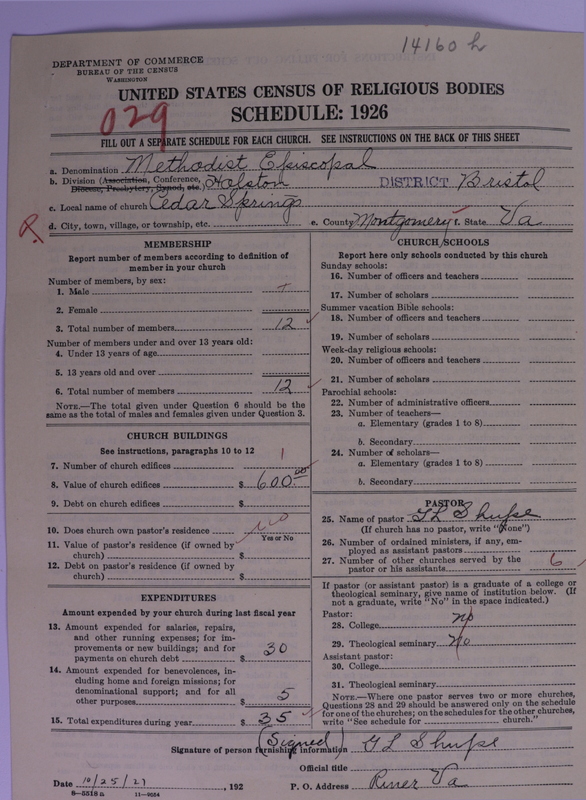 14160 h
DEPARTMENT OF COMMERCE
BUREAU OF THE CENSUS
WASHINGTON
UNITED STATES CENSUS OF RELIGIOUS BODIES
029
SCHEDULE: 1926
FILL OUT A SEPARATE SCHEDULE FOR EACH CHURCH. SEE INSTRUCTIONS ON THE BACK OF THIS SHEET
a. Denomination Methodist Episcopal
b. Division (Association, Conference, Diocese, Presbytery, Synod, etc.) Holston DISTRICT Bristol
c. Local name of church Cedar Springs
R. d. City, town, village, or township, etc. e. County Montgomery f. State Va
MEMBERSHIP
Report number of members according to definition of
member in your church
Number of members, by sex:
1. Male
2. Female
3. Total number of members 12
Number of members under and over 13 years old:
4. Under 13 years of age
5. 13 years old and over
6. Total number of members 12
NOTE.—The total given under Question 6 should be the
same as the total of males and females given under Question 3.
CHURCH BUILDINGS
See instructions, paragraphs 10 to 12
7. Number of church edifices 1
8. Value of church edifices $ 600.00
9. Debt on church edifices $
10. Does church own pastor's residence no
Yes or No
11. Value of pastor's residence (if owned by
church) $
12. Debt on pastor's residence (if owned by
church) $
EXPENDITURES
Amount expended by your church during last fiscal year
13. Amount expended for salaries, repairs,
and other running expenses; for im-
provements or new buildings; and for
payments on church debt $ 30
14. Amount expended for benevolences, in-
cluding home and foreign missions; for
denominational support; and for all
other purposes $ 5
15. Total expenditures during year $ 35
CHURCH SCHOOLS
Report here only schools conducted by this church
Sunday schools:
16. Number of officers and teachers
17. Number of scholars
Summer vacation Bible schools:
18. Number of officers and teachers
19. Number of scholars
Week-day religious schools:
20. Number of officers and teachers
21. Number of scholars
Parochial schools:
22. Number of administrative officers
23. Number of teachers—
a. Elementary (grades 1 to 8)
b. Secondary
24. Number of scholars—
a. Elementary (grades 1 to 8)
b. Secondary
PASTOR
25. Name of pastor G L Shupe
(If church has no pastor, write "None")
26. Number of ordained ministers, if any, em-
ployed as assistant pastors
27. Number of other churches served by the
pastor or his assistants 6
If pastor (or assistant pastor) is a graduate of a college or
theological seminary, give name of institution below. (If
not a graduate, write "No" in the space indicated.)
Pastor:
28. College no
29. Theological seminary No
Assistant pastor:
30. College
31. Theological seminary
NOTE.—Where one pastor serves two or more churches,
Questions 28 and 29 should be answered only on the schedule
for one of the churches; on the schedules for the other churches,
write "See schedule for church."
(Signed)
Signature of person furnishing information G L Shupe
Official title
Date 10/25/27, 192 P. O. Address Riner Va
8—5518 a 11—9054